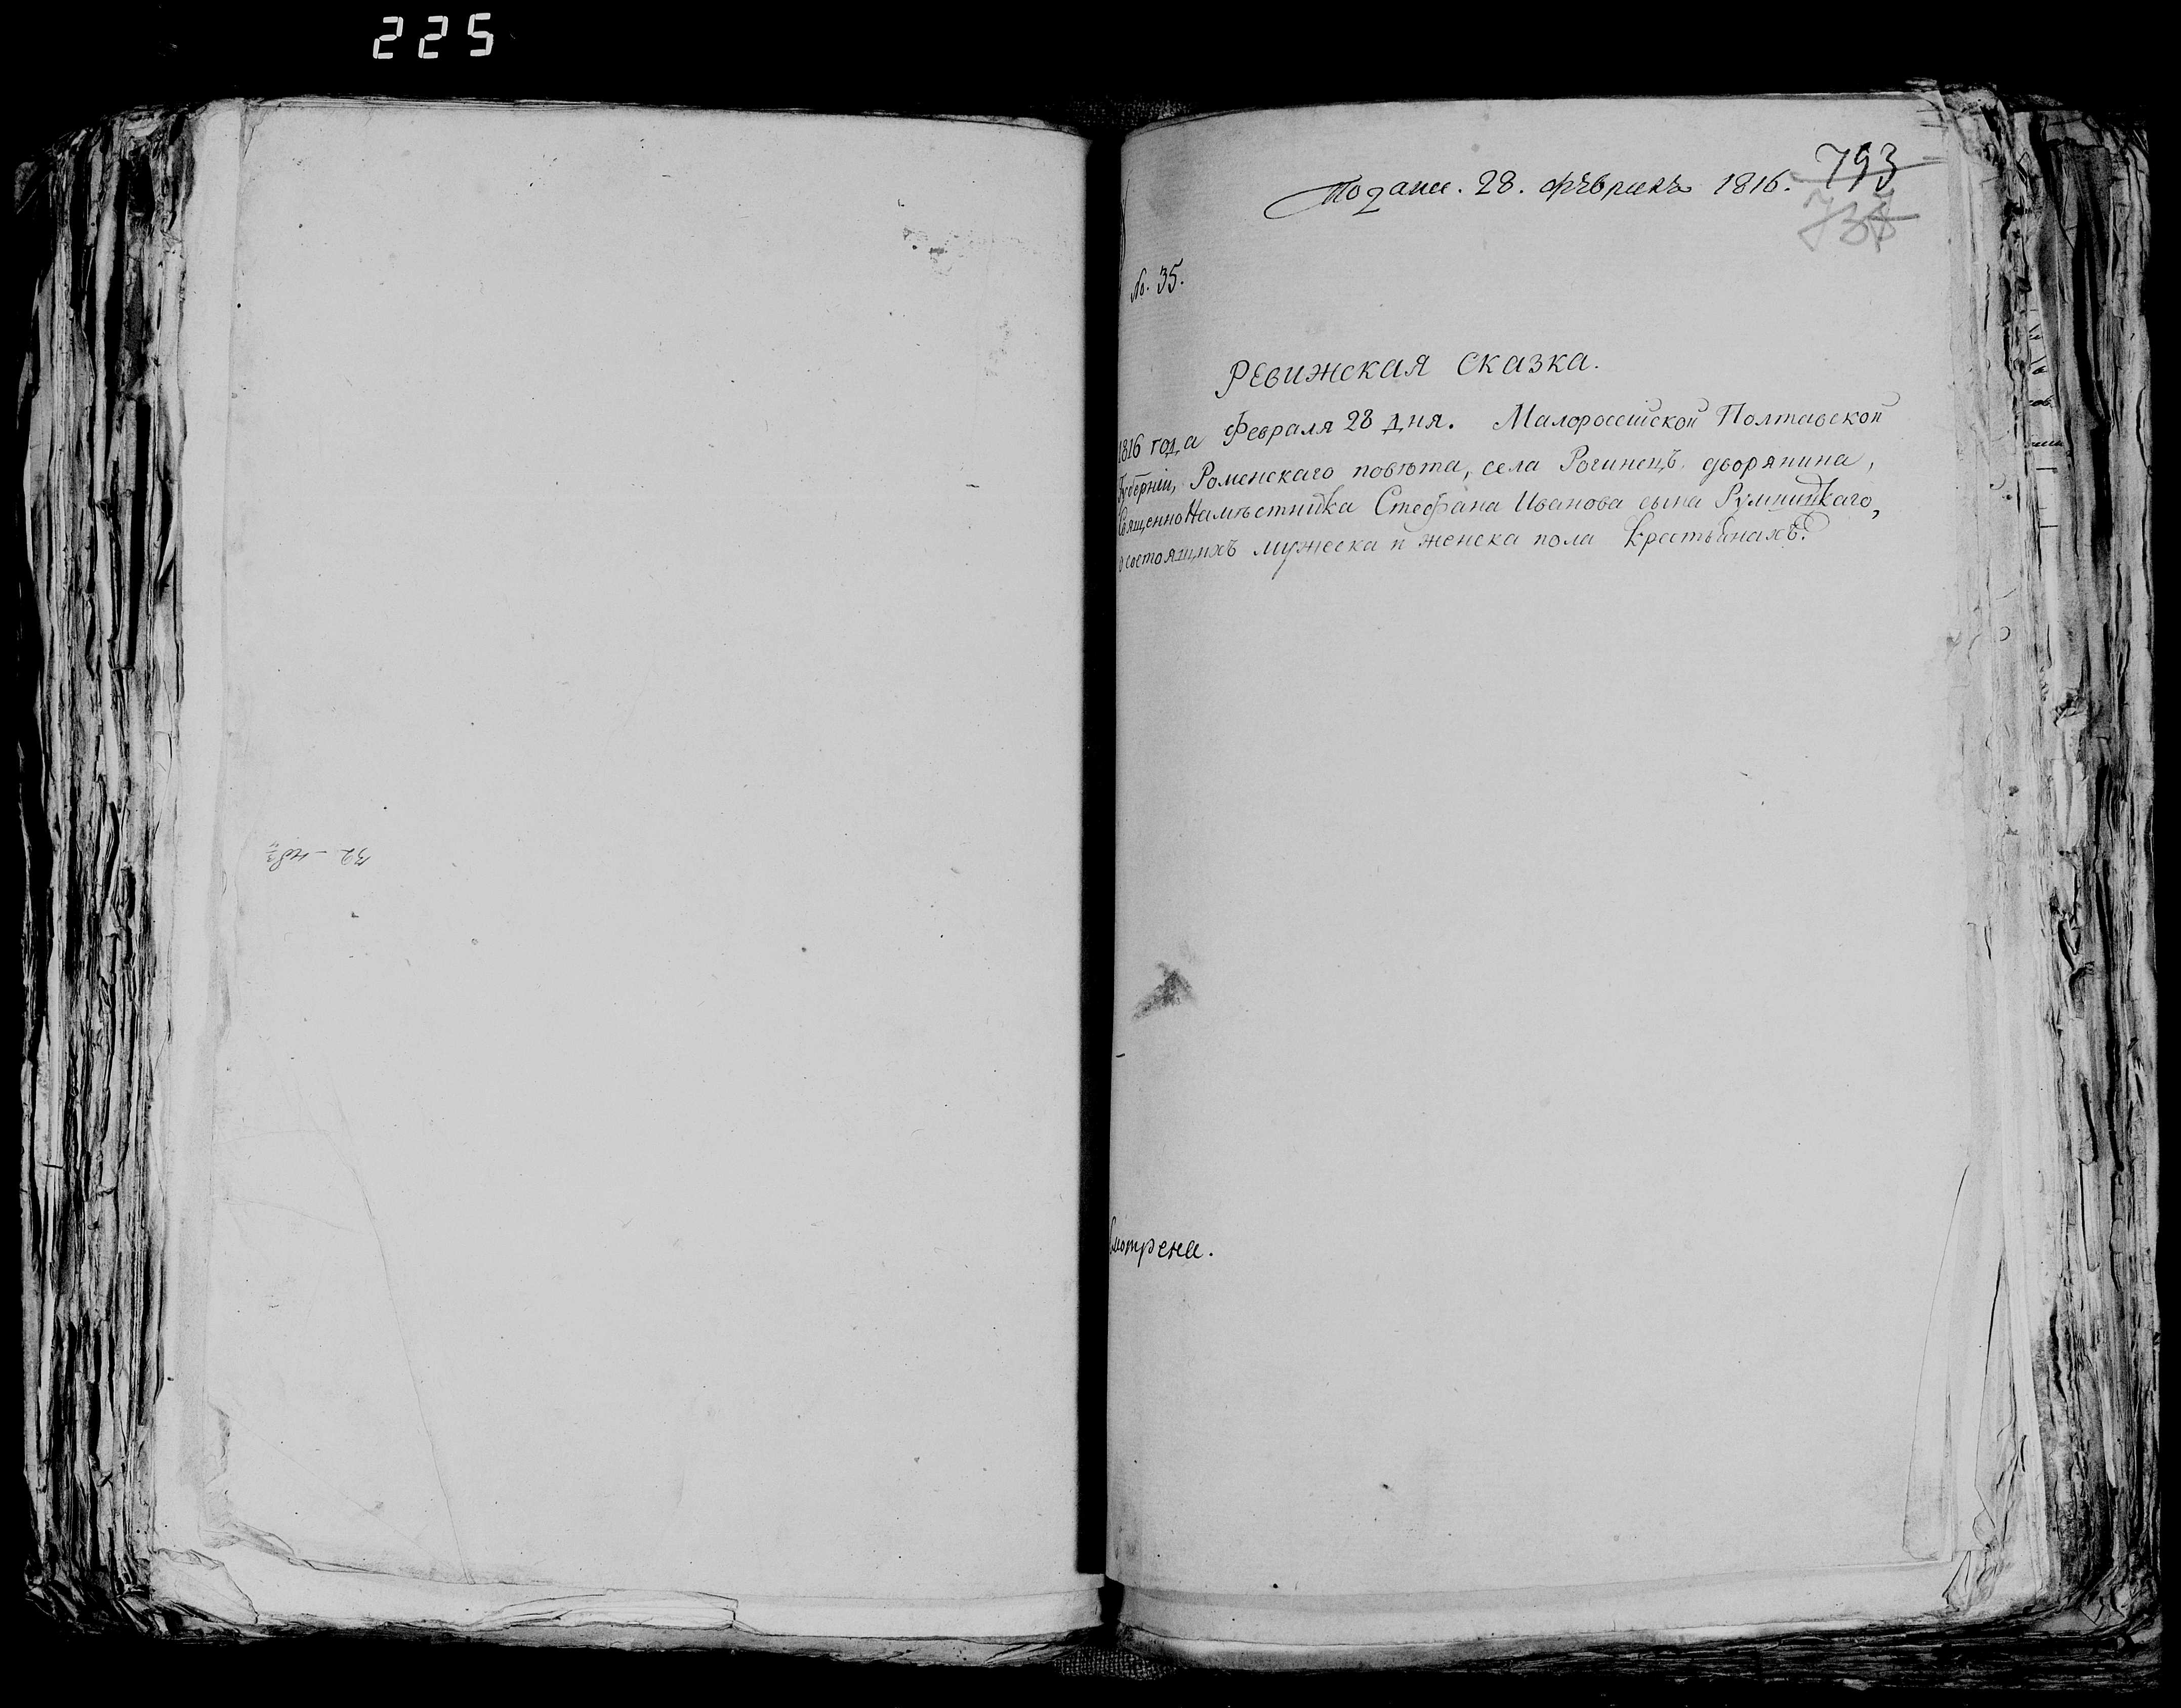 225
Подана. 28. февраля 1816.
793
No. 35.
РЕВИЖСКАЯ СКАЗКА.
1816 года Февраля 28 дня. Малороссійской Полтавской
Губерніи, Роменскаго повѣта, села Рогинецъ, дворянина,
СвященноНамѣстника Стефана Иванова сына Румницкаго,
о состоящихъ мужеска и женска пола крестьянахъ.
смотрена.